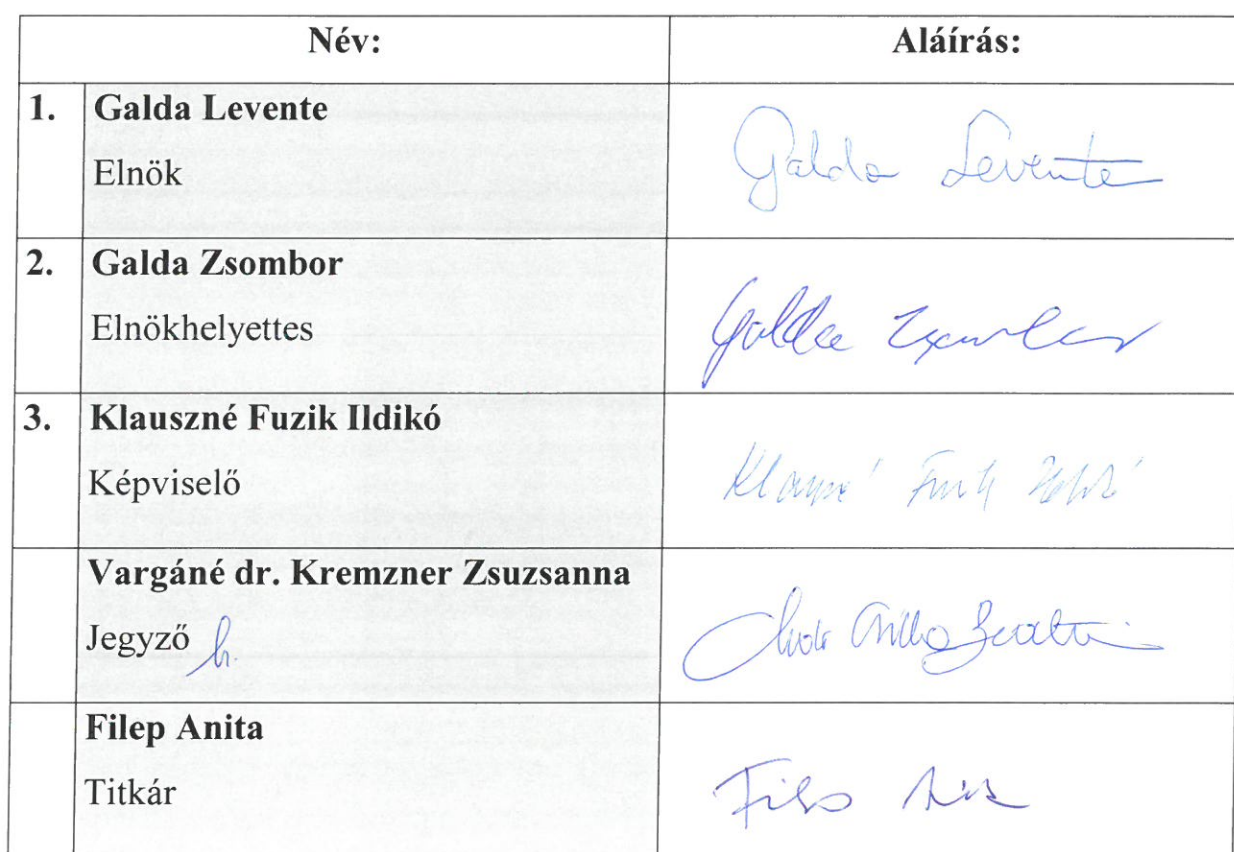 Név: Aláírás:
1. Galda Levente
Elnök
Galda Levente
2. Galda Zsombor
Elnökhelyettes
Galda
3. Klauszné Fuzik Ildikó
Képviselő
Klauszné Fuzik Ildikó
Vargáné dr. Kremzner Zsuzsanna
Jegyző h.
Filep Anita
Titkár
Filep Anita